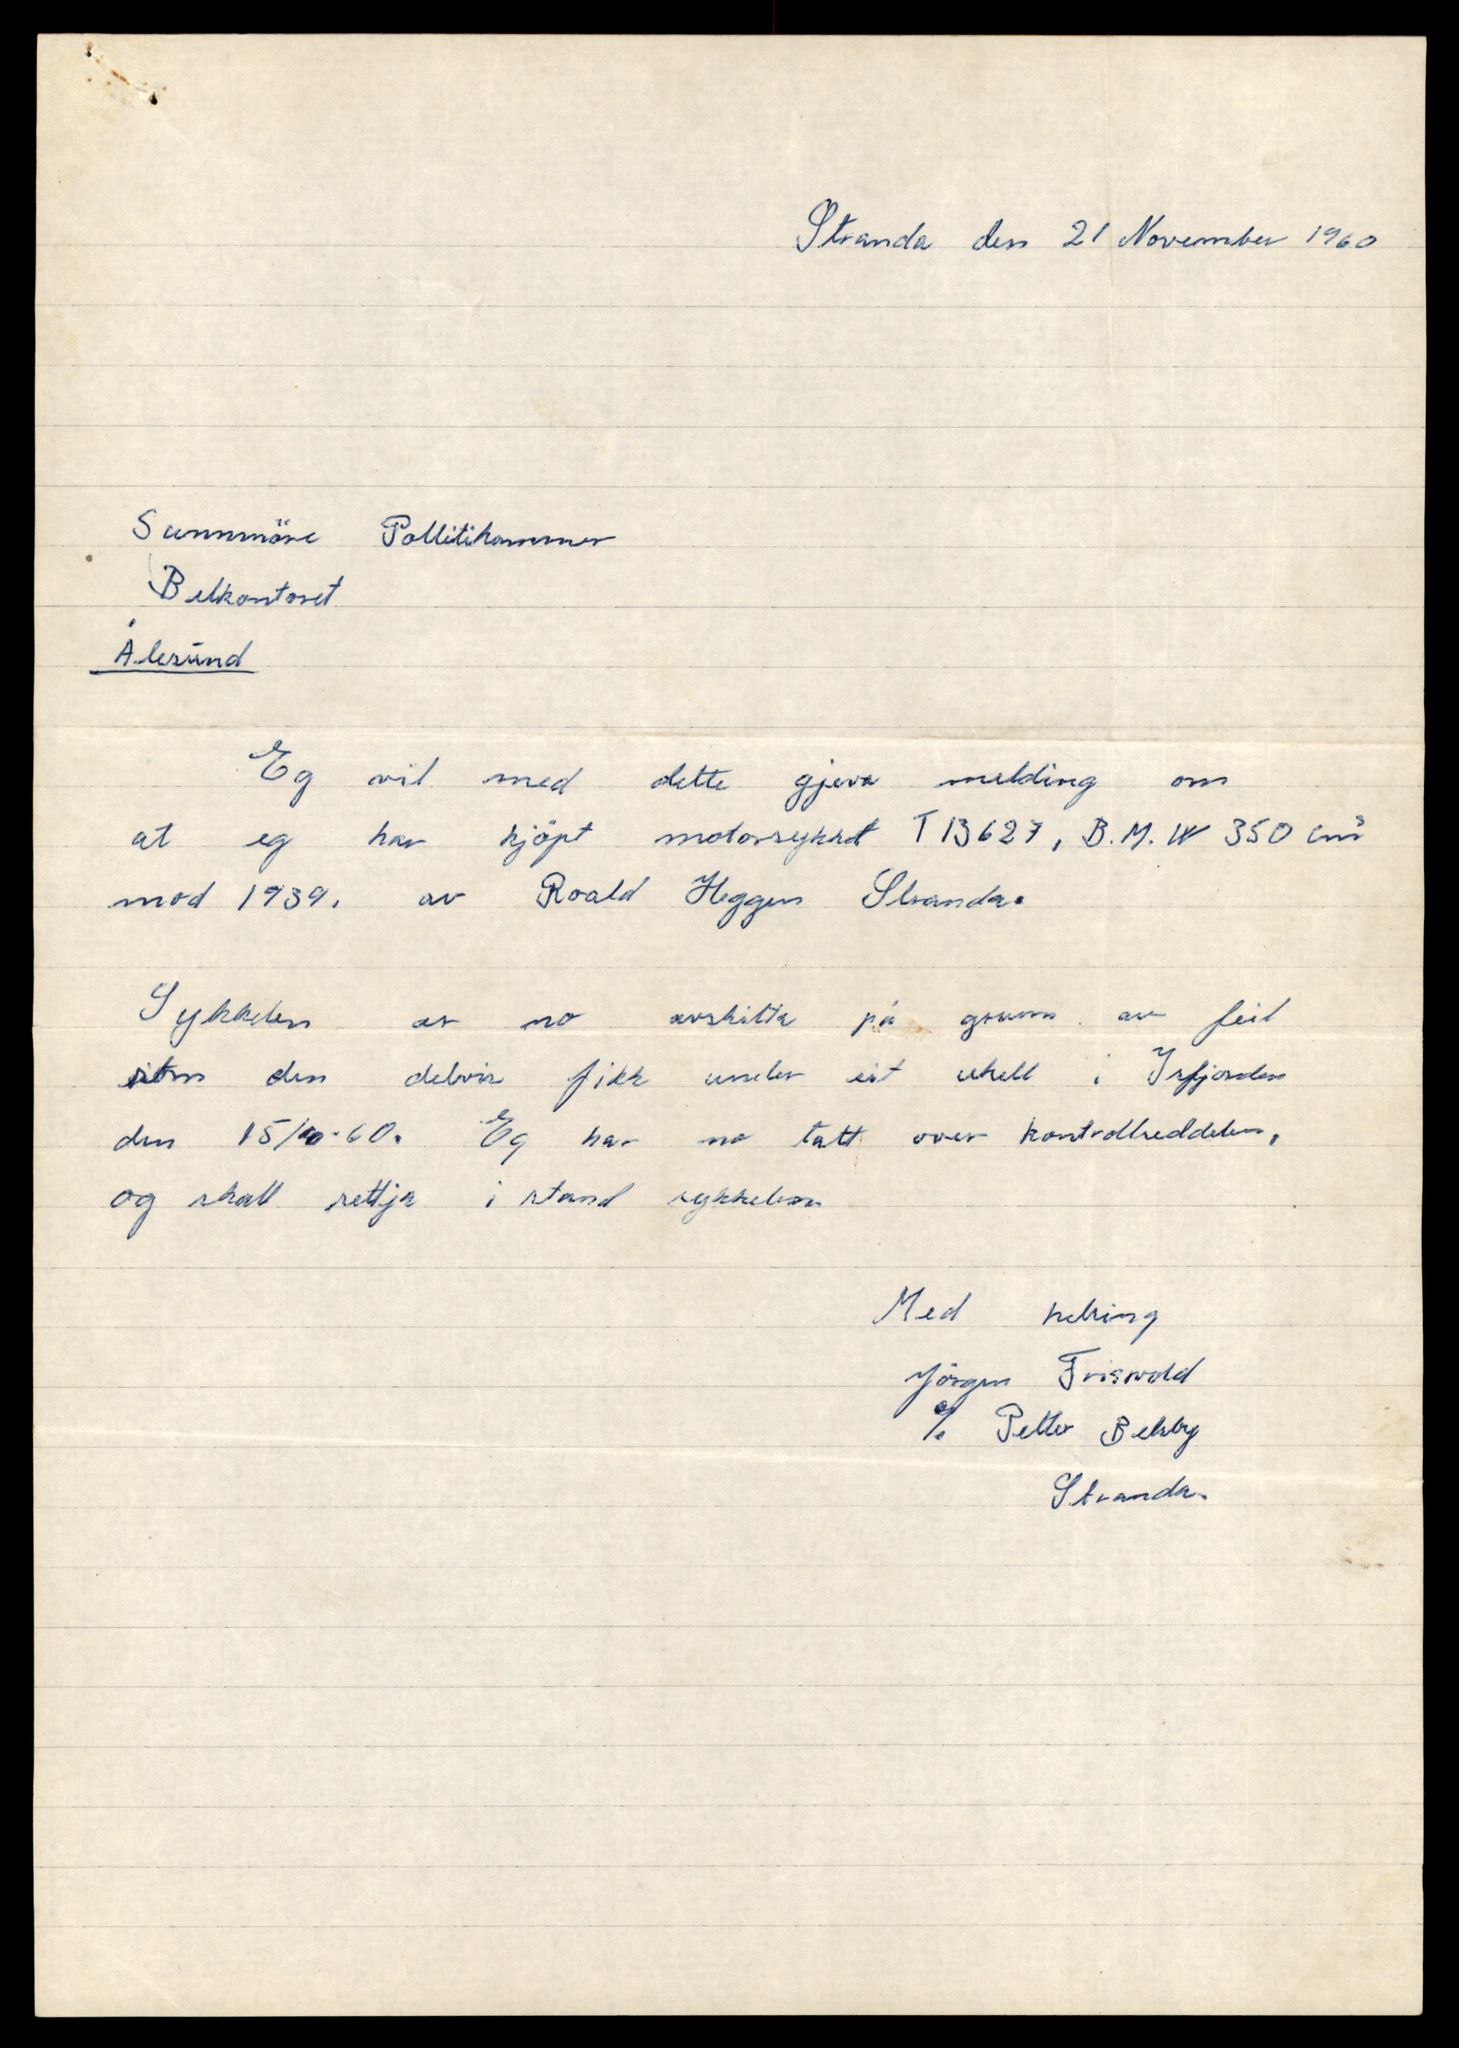 Stranda den 21 November 1960
Sunnmöre Pollitikammer
Bilkontoret
Ålesund
Eg vil med dette gjeva melding om
at eg har kjöpt motorsykkel T 13627, B.M.W 350 cm³
mod 1939. av Roald Heggen Stranda.
Sykkelen er no avskilta på grunn av feil
som den delvis fikk under eit uhell i Isfjorden
den 15/10-60. Eg har no tatt over kontrollseddelen,
og skall settja i stand sykkelen
Med helsing
Jörgen Friswold
% Petter Belsby
Stranda.